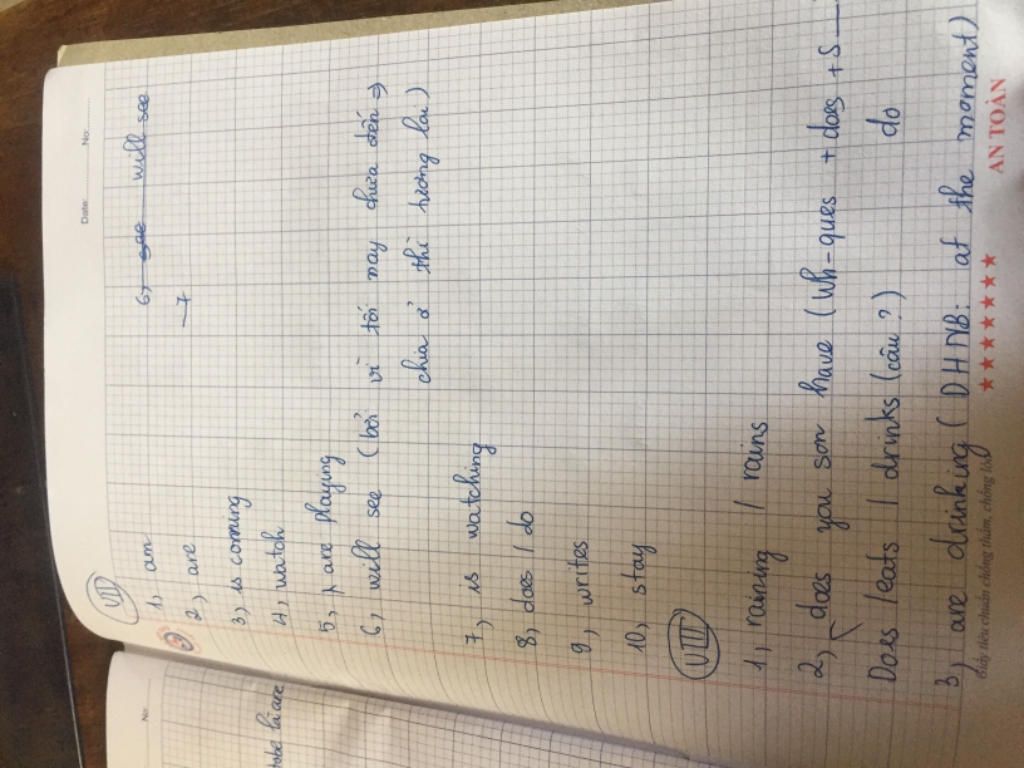 Date: No:
VII
1, am
2, are
3, is coming
4, watch
5, are playing
6, will see (bởi vì tối may chưa đến ⇒
chia ở thì tương lai)
7, is watching
8, does / do
9, writes
10, stay
6, see will see
7
VIII
1, raining / rains
2, does you son have (Wh-ques + does + S
Does / eats / drinks (câu?) do
3, are drinking (DHNB: at the moment)
Giấy tiêu chuẩn chống thấm, chống lóa
★★★★★★★ AN TOÀN
No:
tobe là are